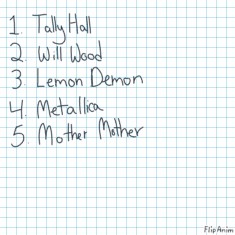 1. Tally Hall
2. Will Wood
3. Lemon Demon
4. Metallica
5. Mother Mother
FlipAnim